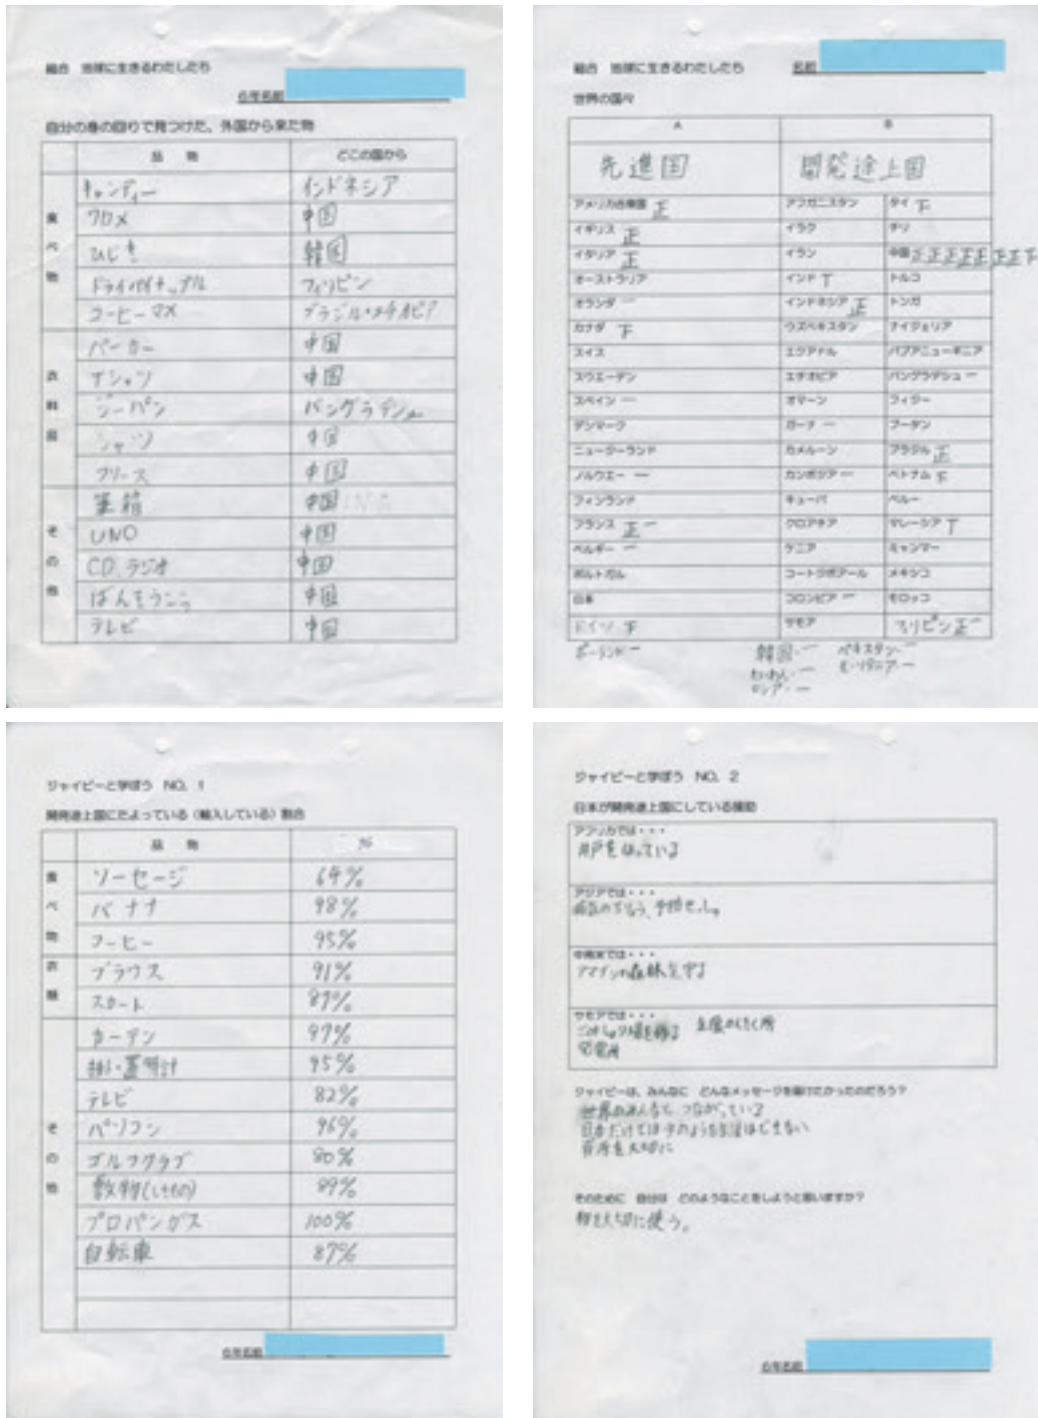 総合 地球に生きるわたしたち
6年名前
自分の身の回りで見つけた、外国から来た物
品 物 どこの国から
食べ物
キャンディー インドネシア
中国
ひじき 韓国
ドライパイナップル フィリピン
コーヒーマメ ブラジル・エチオピア
衣料品
パーカー 中国
Tシャツ 中国
ジーパン バングラデシュ
シャツ 中国
フリース 中国
その他
筆箱 中国
UNO 中国
CDラジオ 中国
ばんそうこう 中国
テレビ 中国
総合 地球に生きるわたしたち 名前
世界の国々
A B
先進国 開発途上国
アメリカ合衆国 正 アフガニスタン タイ 下
イギリス 正 イラク チリ
イタリア 正 イラン 中国 正正正正正正正下
オーストラリア インド T トルコ
オランダ 一 インドネシア 正 トンガ
カナダ 下 ウズベキスタン ナイジェリア
スイス エクアドル パプアニューギニア
スウェーデン エチオピア バングラデシュ 一
スペイン 一 オマーン フィジー
デンマーク ガーナ 一 ブータン
ニュージーランド カメルーン ブラジル 正
ノルウェー 一 カンボジア 一 ベトナム 下
フィンランド キューバ ペルー
フランス 正一 クロアチア マレーシア T
ベルギー 一 ケニア ミャンマー
ポルトガル コートジボアール メキシコ
日本 コロンビア 一 モロッコ
ドイツ 下 サモア フィリピン 正一
ポーランド 一 韓国・一 パキスタン・一
たいわん・一 モーリタニア・一
ロシア・一
ジャイピーと学ぼう NO. 1
開発途上国にたよっている(輸入している)割合
品 物 %
食べ物
ソーセージ 64%
バナナ 98%
コーヒー 95%
衣類
ブラウス 91%
スカート 87%
その他
カーテン 97%
掛・置時計 95%
テレビ 82%
パソコン 96%
ゴルフクラブ 80%
敷物(しきもの) 89%
プロパンガス 100%
自転車 87%
6年名前
ジャイピーと学ぼう NO. 2
日本が開発途上国にしている援助
アフリカでは・・・
井戸をほっている
アジアでは・・・
病気のちりょう、手術をし。
中南米では・・・
アマゾンの森林を守る
サモアでは・・・
発電所
ジャイピーは、みんなに どんなメッセージを届けたかったのだろう?
世界のみんなと、つながっている
日本だけでは今のような生活はできない
資源を大切に
そのために 自分は どのようなことをしようと思いますか?
物を大切に使う。
6年名前